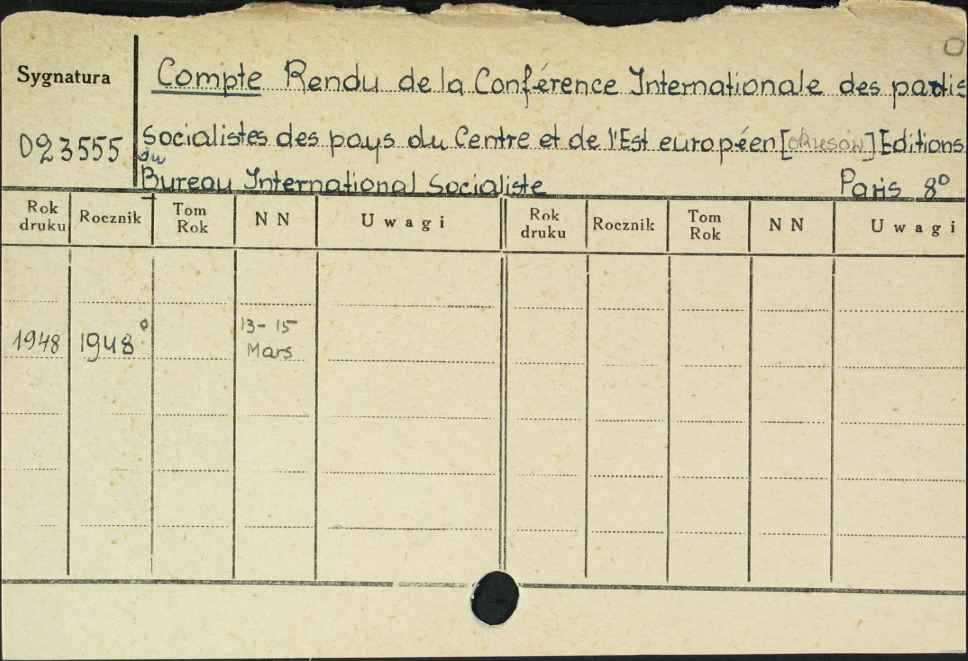 Sygnatura
Compte Rendu de la Conférence Internationale des partis
023555
Socialistes des pays du Centre et de l'Est européen [ ] Editions
du
Bureau International Socialiste Paris 8°
Rok druku Rocznik Tom Rok N N Uwagi Rok druku Rocznik Tom Rok N N Uwagi
1948 1948° 13-15
Mars